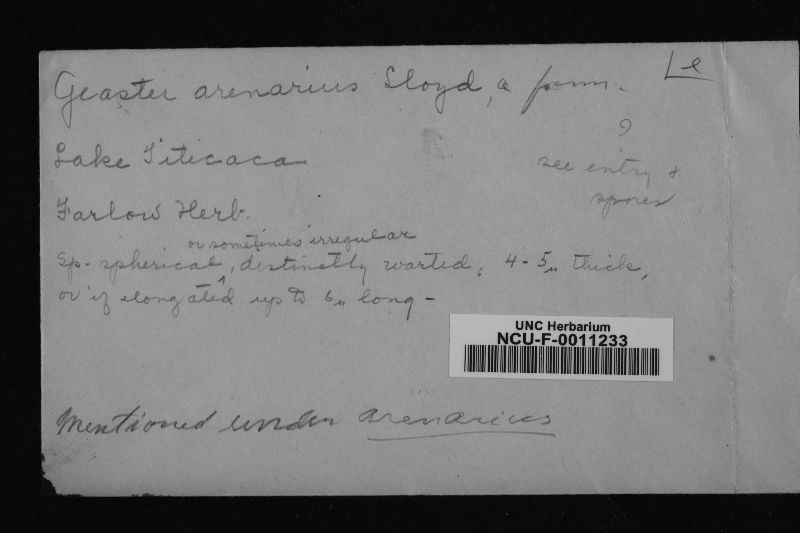 Geaster arenarius Lloyd, a form.
Le
?
Lake Titicaca
see entry &
spores
Farlow Herb.
or sometimes irregular
Sp. spherical, distinctly warted, 4-5µ thick,
or if elongated up to 6µ long -
UNC Herbarium
NCU-F-0011233
Mentioned under arenarius